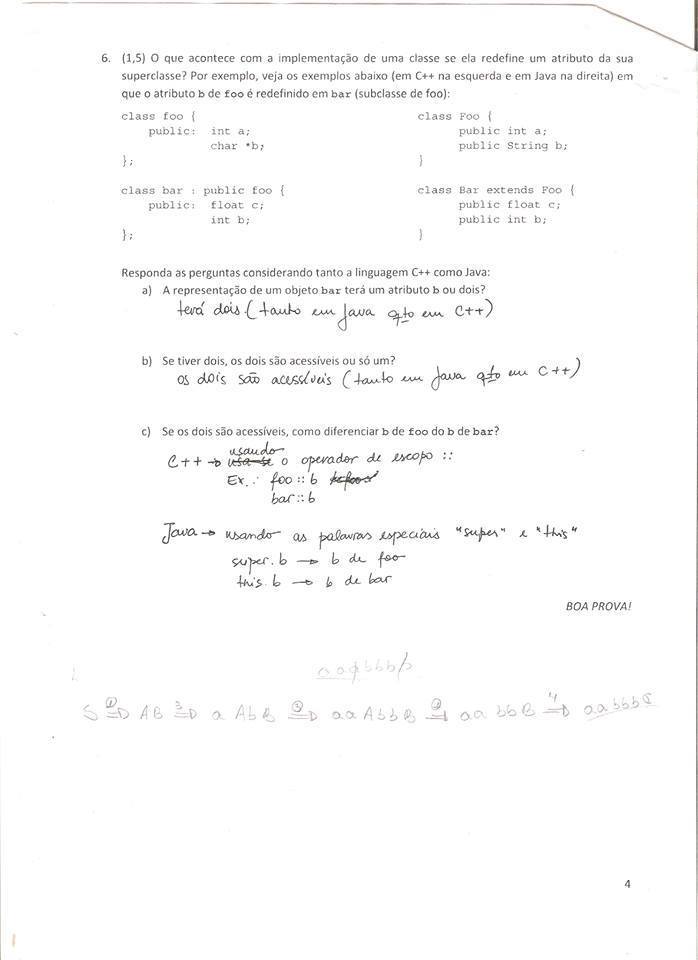 6. (1,5) O que acontece com a implementação de uma classe se ela redefine um atributo da sua
superclasse? Por exemplo, veja os exemplos abaixo (em C++ na esquerda e em Java na direita) em
que o atributo b de foo é redefinido em bar (subclasse de foo):
class foo {
public: int a;
char *b;
};
class Foo {
public int a;
public String b;
}
class bar : public foo {
public: float c;
int b;
};
class Bar extends Foo {
public float c;
public int b;
}
Responda as perguntas considerando tanto a linguagem C++ como Java:
a) A representação de um objeto bar terá um atributo b ou dois?
terá dois (tanto em Java qto em C++)
b) Se tiver dois, os dois são acessíveis ou só um?
os dois são acessíveis (tanto em Java qto em C++)
c) Se os dois são acessíveis, como diferenciar b de foo do b de bar?
usando
C++ → usa-se o operador de escopo ::
Ex.: foo::b
bar::b
Java → usando as palavras especiais "super" e "this"
super.b → b de foo
this.b → b de bar
BOA PROVA!
S ⇒ AB ⇒ a AbB ⇒ aa AbbB ⇒ aa bbB ⇒ aabbb
4